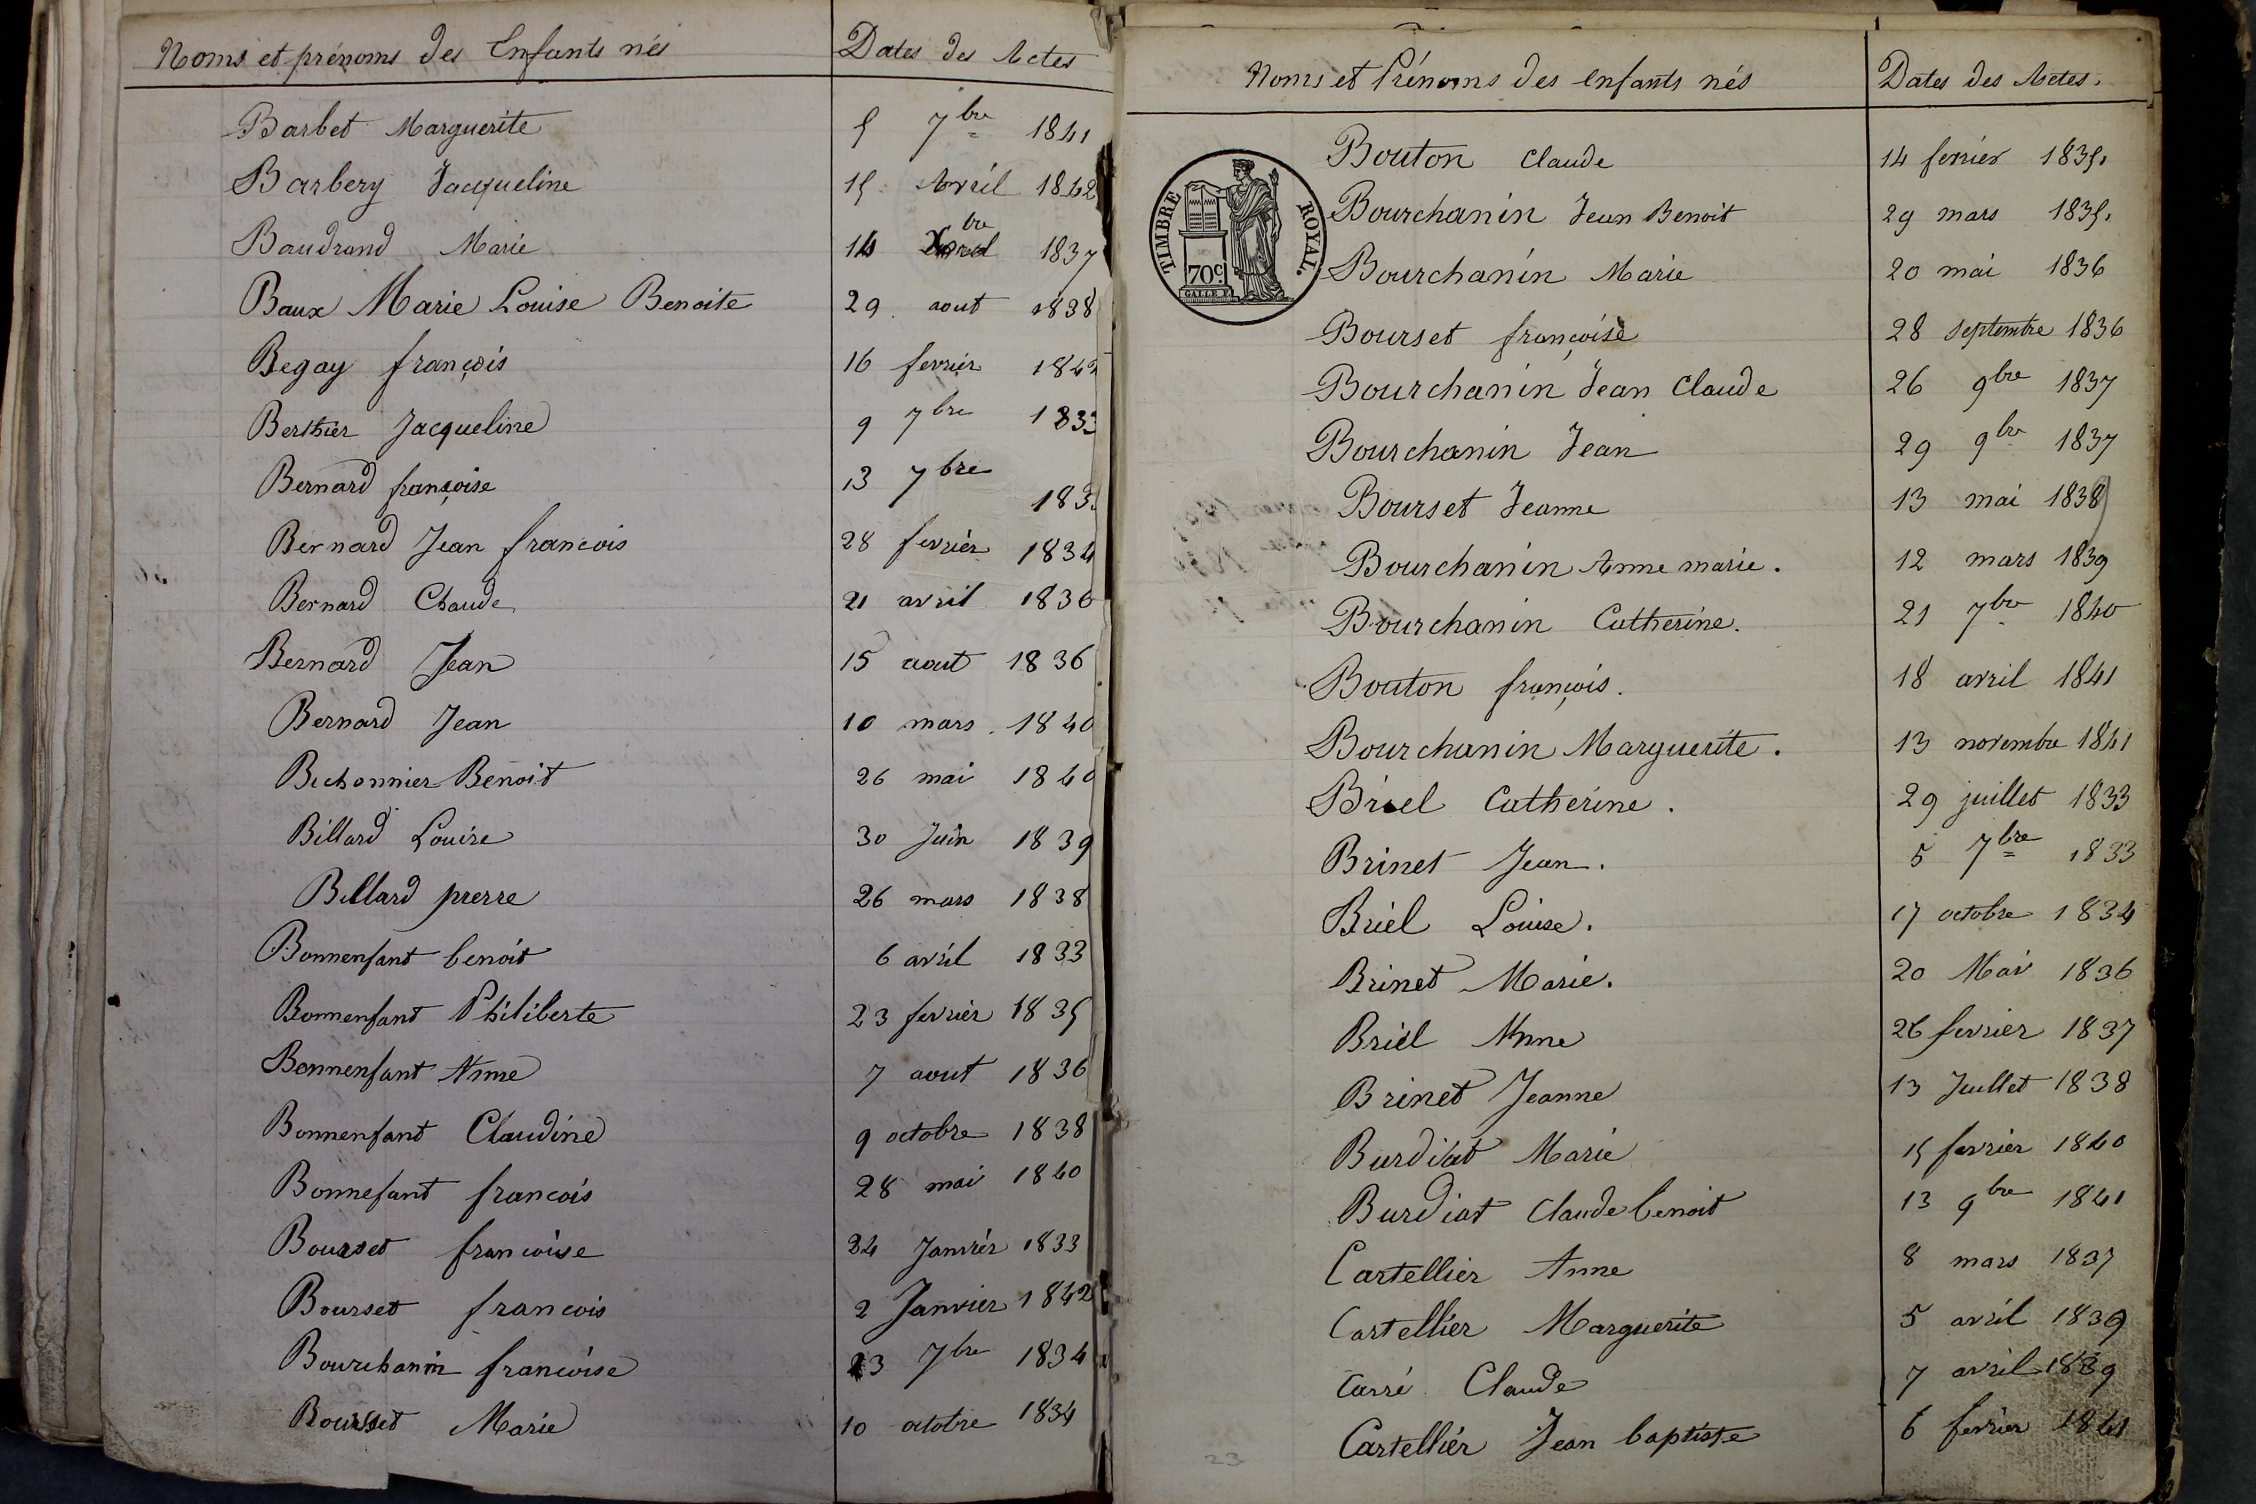 Noms et prénoms des Enfants nés Dates des Actes
Barbet Marguerite 5 7bre 1841
Barbery Jacqueline 15 Avril 1842
Baudrand Marie 14 Xbre 1837
Baux Marie Louise Benoite 29 aout 1838
Begay françois 16 fevrier 1842
Berthier Jacqueline 9 7bre 1833
Bernard françoise 13 7bre
Bernard Jean francois 28 fevrier 1834
Bernard Claude 21 avril 1836
Bernard Jean 15 aout 1836
Bernard Jean 10 mars 1840
Bichonnier Benoit 26 mai 1840
Billard Louise 30 Juin 1839
Billard pierre 26 mars 1838
Bonnenfant benoit 6 avril 1833
Bonnenfant Philiberte 23 fevrier 1835
Bonnenfant Anne 7 aout 1836
Bonnenfant Claudine 9 octobre 1838
Bonnefant francois 28 mai 1840
Bourset francoise 24 Janvier 1833
Bourset francois 2 Janvier 1842
Bourchanin francoise 23 7bre 1834
Bourset Marie 10 octobre 1834
Noms et Prénoms des enfants nés Dates des Actes.
TIMBRE ROYAL.
70c.
Bouton Claude 14 fevrier 1835.
Bourchanin Jean Benoit 29 mars 1835.
Bourchanin Marie 20 mai 1836
Bourset françoise 28 septembre 1836
Bourchanin Jean Claude 26 9bre 1837
Bourchanin Jean 29 9bre 1837
Bourset Jeanne 13 mai 1838
Bourchanin Anne marie. 12 mars 1839
Bourchanin Catherine. 21 7bre 1840
Bouton françois. 18 avril 1841
Bourchanin Marguerite. 13 novembre 1841
Briel Catherine. 29 juillet 1833
Brinet Jean. 5 7bre 1833
Briel Louise. 17 octobre 1834
Brinet Marie. 20 Mai 1836
Briel Anne 26 fevrier 1837
Brinet Jeanne 13 Juillet 1838
Burdiat Marie 15 fevrier 1840
Burdiat Claude benoit 13 9bre 1841
Cartellier Anne 8 mars 1837
Cartellier Marguerite 5 avril 1839
Carré Claude 7 avril 1839
Cartellier Jean baptiste 6 fevrier 1841
23